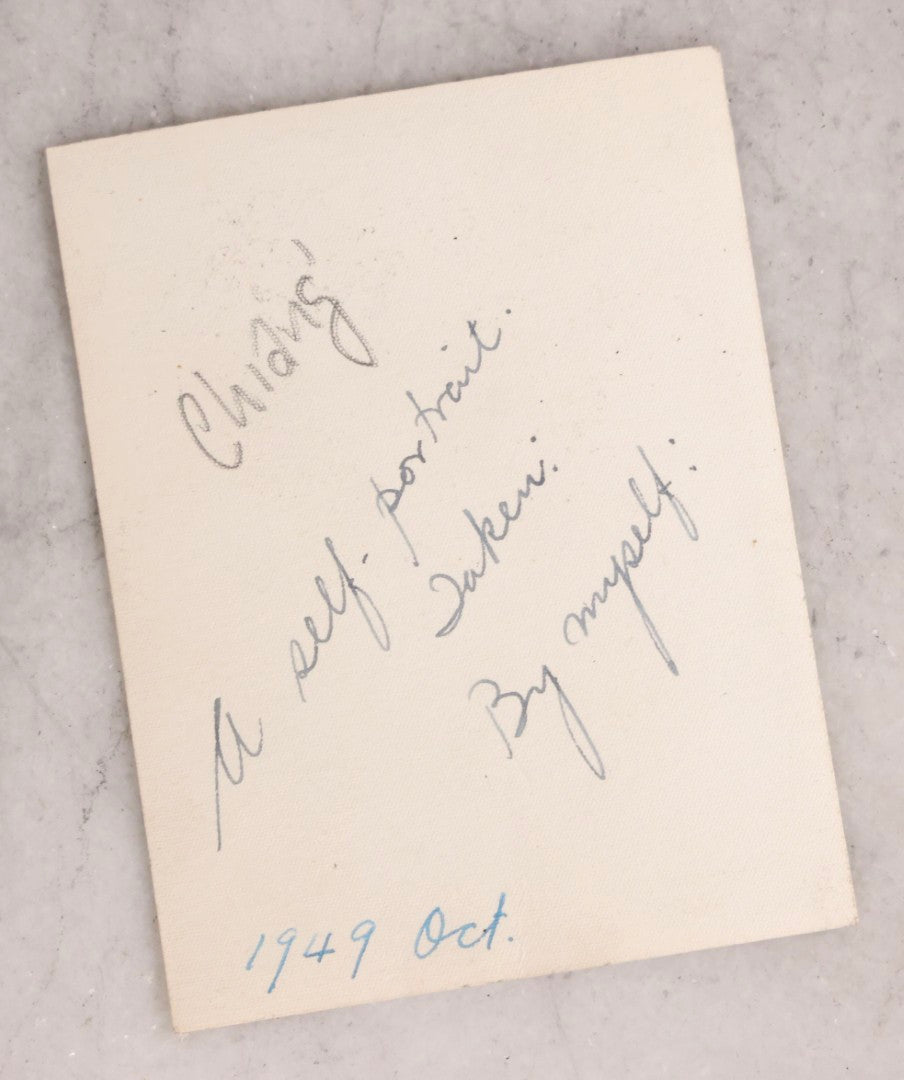 Chiang
A self. portrait.
Taken.
By myself.
1949 Oct.